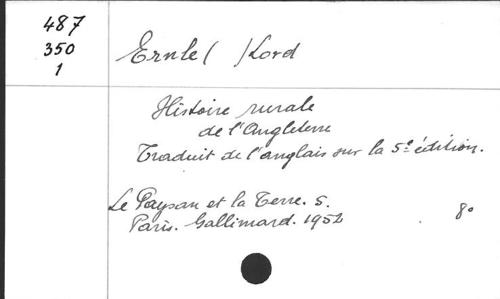 487
350
1
Ernle ( ) Lord
Histoire rurale
de l'Angleterre
Traduit de l'anglais sur la 5e édition.
Le Paysan et la Terre. 5.
Paris. Gallimard. 1952 . 8o